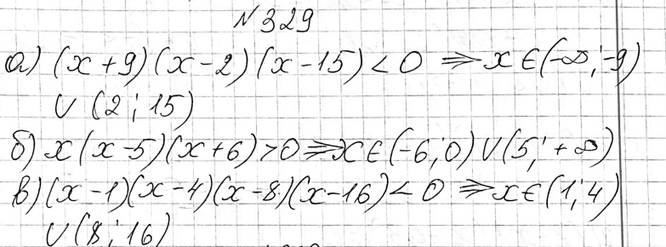 №329
а) (x+9)(x-2)(x-15)<0 ⇒ x∈(-∞;-9)
∪(2;15)
б) x(x-5)(x+6)>0 ⇒ x∈(-6;0)∪(5;+∞)
в) (x-1)(x-4)(x-8)(x-16)<0 ⇒ x∈(1;4)
∪(8;16)